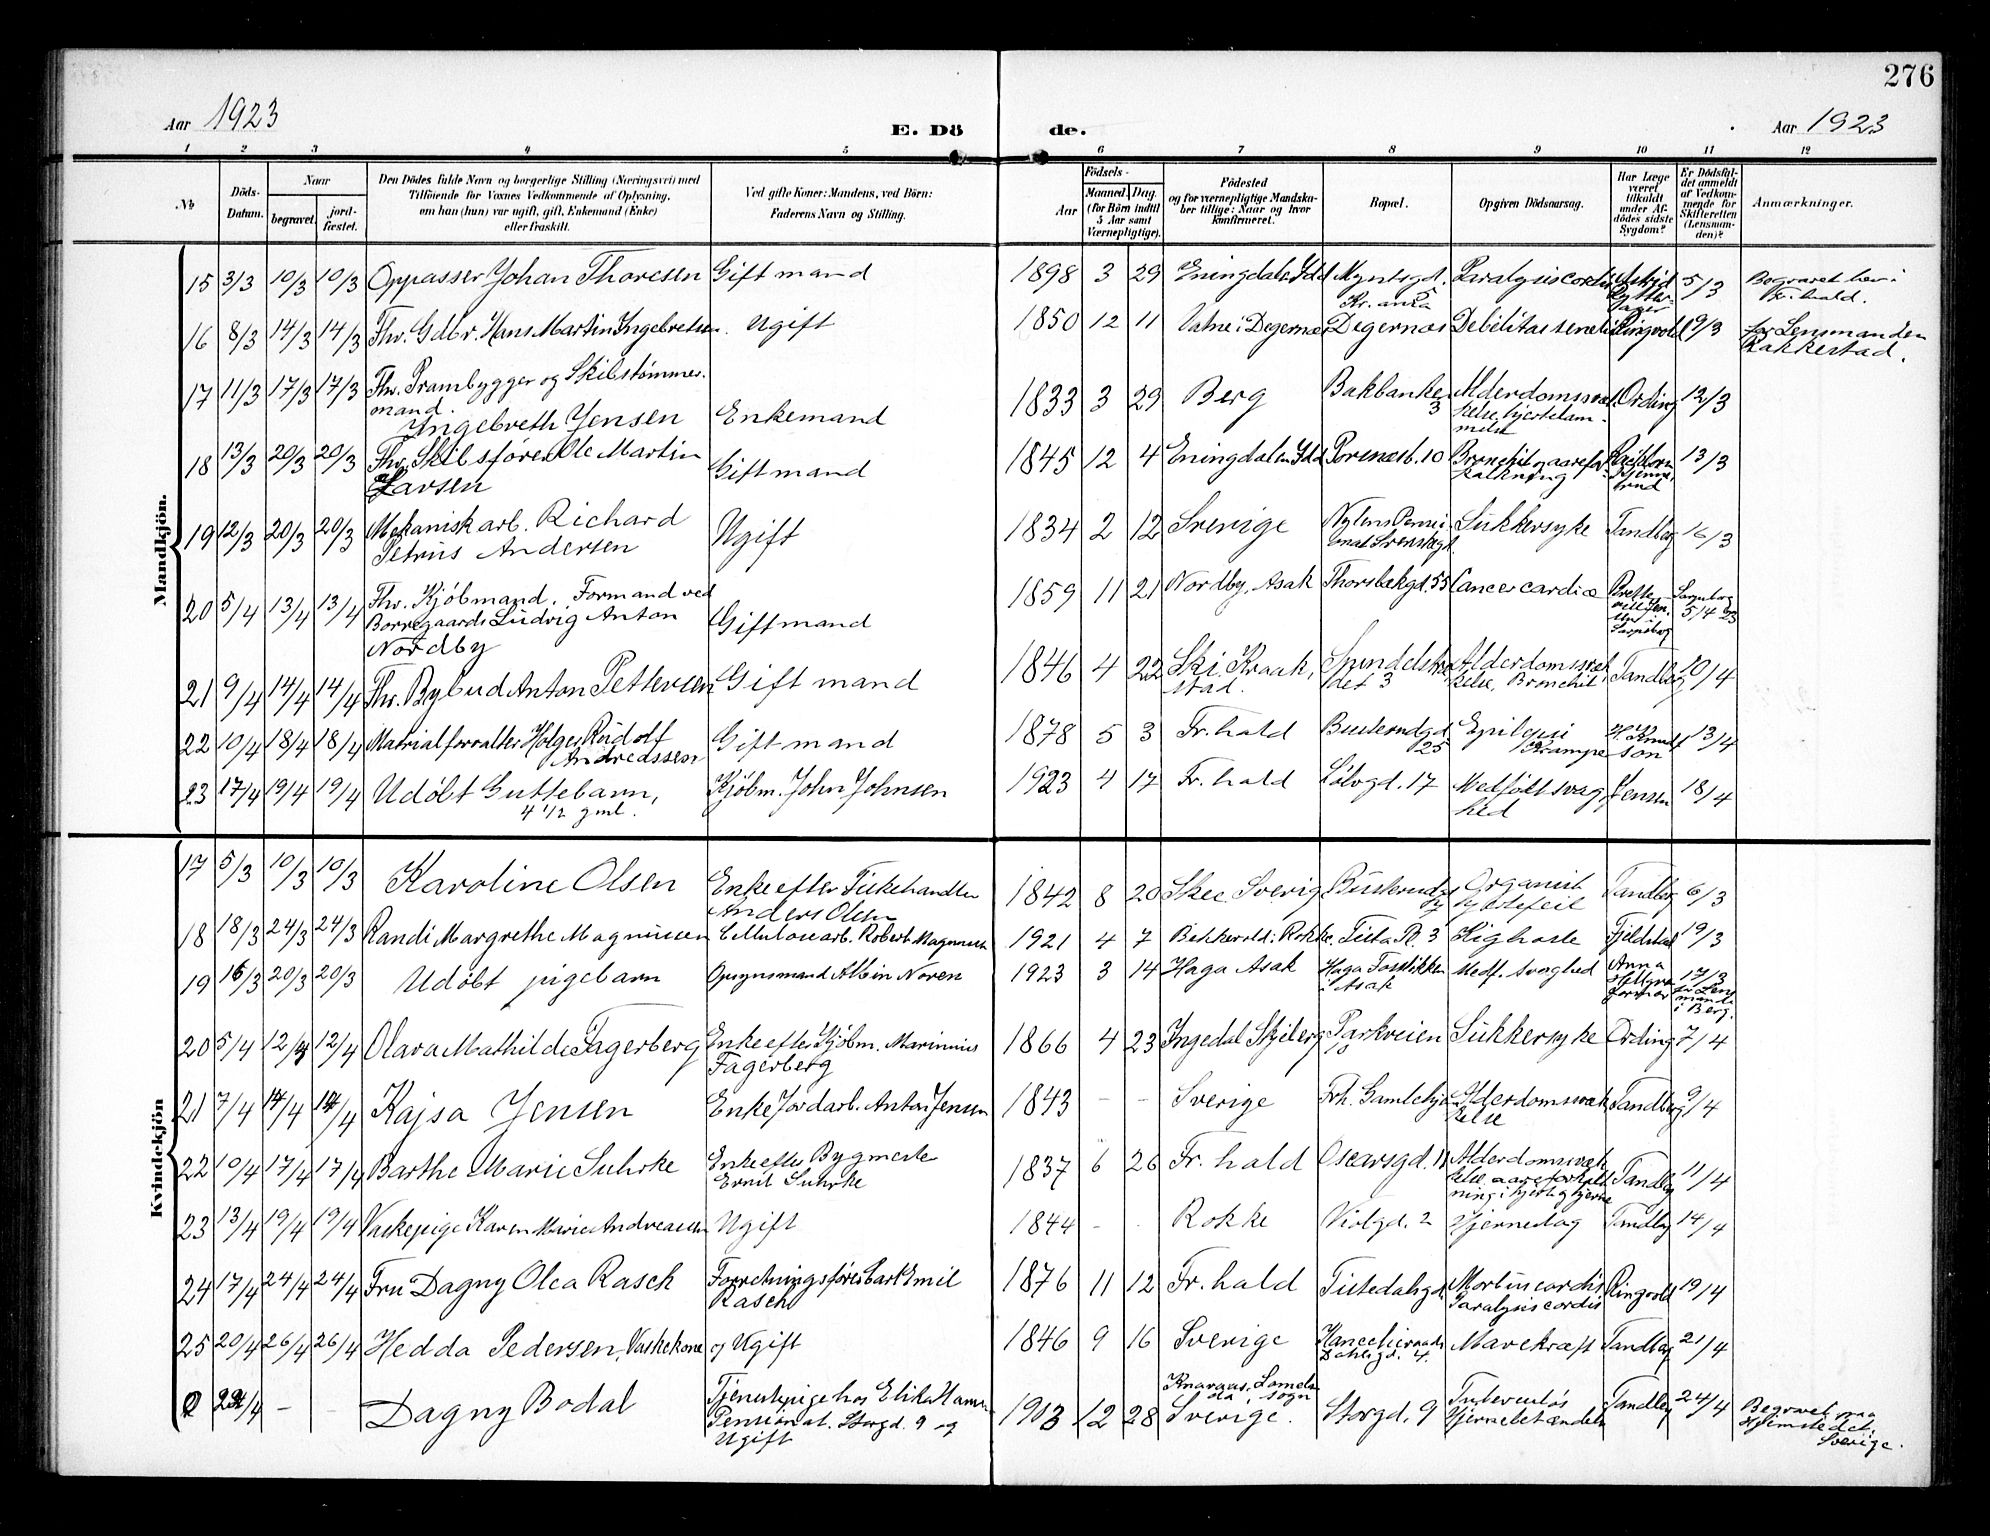 276
Aar 1923
E. Dö
de.
Aar 1923
1 2 3 4 5 6 7 8 9 10 11 12
№
Döds-Datum.
Naar
begravet.
jordfæstet.
Den Dödes fulde Navn og borgerlige Stilling (Næringsvei) med Tilföiende for Voxnes Vedkommende af Oplysning, om han (hun) var ugift, gift, Enkemand (Enke) eller fraskilt.
Ved gifte Koner: Mandens, ved Börn: Faderens Navn og Stilling.
Födsels-
Aar
Maaned. Dag.
(for Börn indtil 5 Aar samt Værnepligtige).
Födested og for værnepligtige Mandskaber tillige: Naar og hvor konfirmeret.
Bopæl.
Opgiven Dödsaarsag.
Har Læge været tilkaldt under Afdödes sidste Sygdom?
Er Dödsfaldet anmeldt af Vedkommende for Skifteretten (Lensmanden)?
Anmærkninger.
Mandkjön.
15 3/3 10/3 10/3 Oppasser Johan Thoresen Gift mand 1898 3 29 Eningdalen Idd Myntsgd. Kr. ania Paralysis cordis Astrid 5/3 Begravet her i Fr.hald.
16 8/3 14/3 14/3 Fhv. Gdbr. Hans Martin Ingebretsen. Ugift 1850 12 11 i Degernæs Degernæs Debilitas senelis Ringvold 9/3 for Lensmanden Rakkestad.
17 11/3 17/3 17/3 Fhv. Prambygger og Skibstømmermand. Ingebreth Jensen Enkemand 1833 3 29 Berg Bakbanken 3 Alderdomssvækkelse, hjertelammelse Ording 12/3
18 13/3 20/3 20/3 Fhv. Skibsfører Ole Martin Larsen Gift mand 1845 12 4 Eningdalen Idd 10 Bronchit og aareforkalkning 13/3
19 12/3 20/3 20/3 Mekanisk arb. Richard Petrus Andersen Ugift 1834 2 12 Sverige Sukkersyke Tandberg 16/3
20 5/4 13/4 13/4 Fhv. Kjøbmand. Formand ved Borregaards Ludvig Anton Nordby Gift mand 1859 11 21 Nordby, Asak Thorsbækgd. 55 Cancer cardia Sarpsborg Sarpsborg 5/4 23
21 9/4 14/4 14/4 Fhv. Bybud Anton Pettersen Gift mand 1846 4 22 Ski. Kraakstad. 3 Alderdomssvækkelse, Bronchit Tandberg 10/4
22 10/4 18/4 18/4 Matrialforvalter Holger Rudolf Andreassen Gift mand 1878 5 3 Fr. hald 25 Epilepsi Krampe H. Knudtson 13/4
23 17/4 19/4 19/4 Udøbt Guttebarn, 4 1/2 gml. Kjøbm. John Johnsen 1923 4 17 Fr. hald 17 Medfødt svaghed Jensen 18/4
Kvindekjön
17 5/3 10/3 10/3 Karoline Olsen Enke efter Fiskehandler Anders Olsen 1842 8 20 Skee Sverige Organisk hjertefeil Tandberg 6/3
18 18/3 24/3 24/3 Randi Margrethe Magnussen Cellulosearb. Robert Magnussen 1921 4 7 Rokke. Tista Pl. 3 Kighoste Fjeldstad 19/3
19 16/3 20/3 20/3 Udøbt pigebarn Opsynsmand Albin Noren 1923 3 14 Haga Asak Haga i Asak Medf. Svaghed Anna 17/3 i Berg.
20 5/4 12/4 12/4 Olava Mathilde Fagerberg Enke efter Kjøbm. Marinius Fagerberg 1866 4 23 Ingedal Skjeberg Parkveien Sukkersyke Ording 7/4
21 7/4 14/4 14/4 Kajsa Jensen Enke Jordarb. Anton Jensen 1843 - - Sverige Frh. Gamlehjem Alderdomssvækkelse Tandberg 9/4
22 10/4 17/4 17/4 Barthe Marie Suhrke Enke efter Bygmester Ernst Suhrke 1837 6 26 Fr. hald Oscarsgd. Alderdomssvækkelse Tandberg 11/4
23 13/4 19/4 19/4 Vaskepige Karen Marie Andreassen Ugift 1844 - - Rokke 2 Hjerneslag Tandberg 14/4
24 17/4 24/4 24/4 Fru Dagny Olea Rasch Forretningsfører Carl Emil Rasch 1876 11 12 Fr. hald Tistedalsgd. Morbus cordis Paralysis cordis Ringvold 19/4
25 20/4 26/4 26/4 Hedda Pedersen, Vaskekone og Ugift 1846 9 16 Sverige 4. Mavekræft Tandberg 21/4
22/4 - - Dagny Bodal Tjenestepige hos Pensionat. Storgd. 9 og Ugift 1903 12 28 sogn Sverige. Storgd. 9 Tuberculøs Hjernebetændelse Tandberg 24/4 Begravet paa Hjemstedet, Sverige.